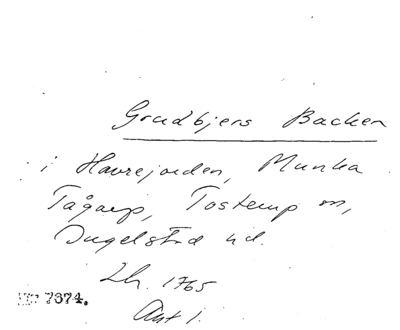 Grudbjers Backen
i Havrejorden, Munka
Tågarp, Tosterup sn,
Ingelstad hd.
Lh. 1765
Akt 1.
7374.